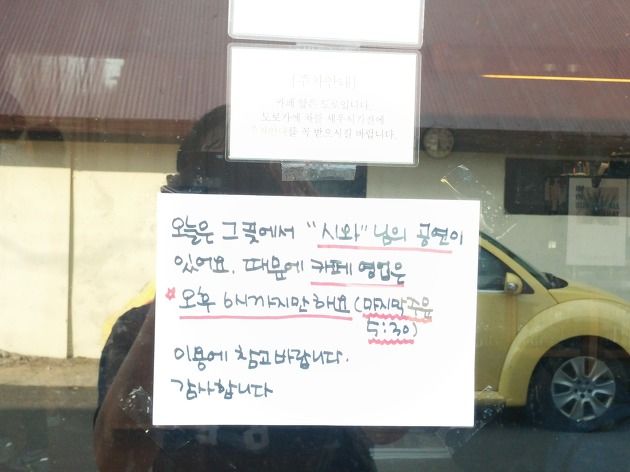 [주차안내]
카페 앞은 도로입니다.
도로가에 차를 세우시기전에
주차안내를 꼭 받으시길 바랍니다.
오늘은 그 곶에서 "시와"님의 공연이
있어요. 때문에 카페 영업은
오후 6시까지만 해요 (마지막 주문
5:30)
이용에 참고바랍니다.
감사합니다